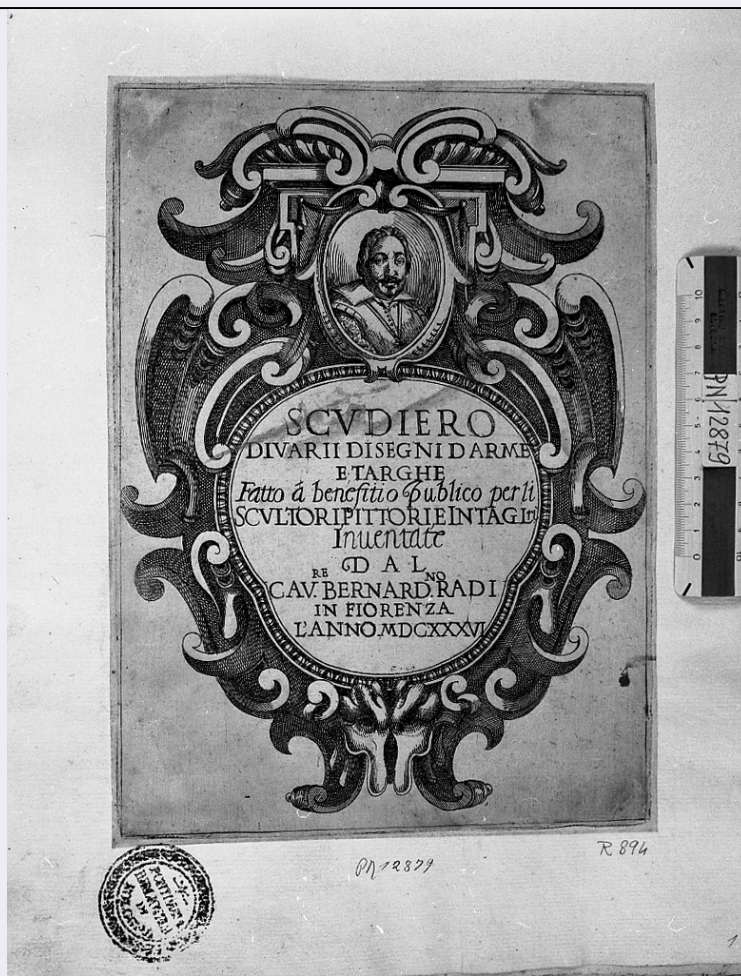 SCVDIERO
DI VARII DISEGNI D ARME
E TARGHE
Fatto á benefitio Publico per li
SCVLTORI PITTORI E INTAGLRI
Inuentate
DAL
CAV.RE BERNARD.NO RADI
IN FIORENZA
L'ANNO MDCXXXVI
PN 12879
R 894
1
PN 12879
0 1 2 3 4 5 6 7 8 9 10